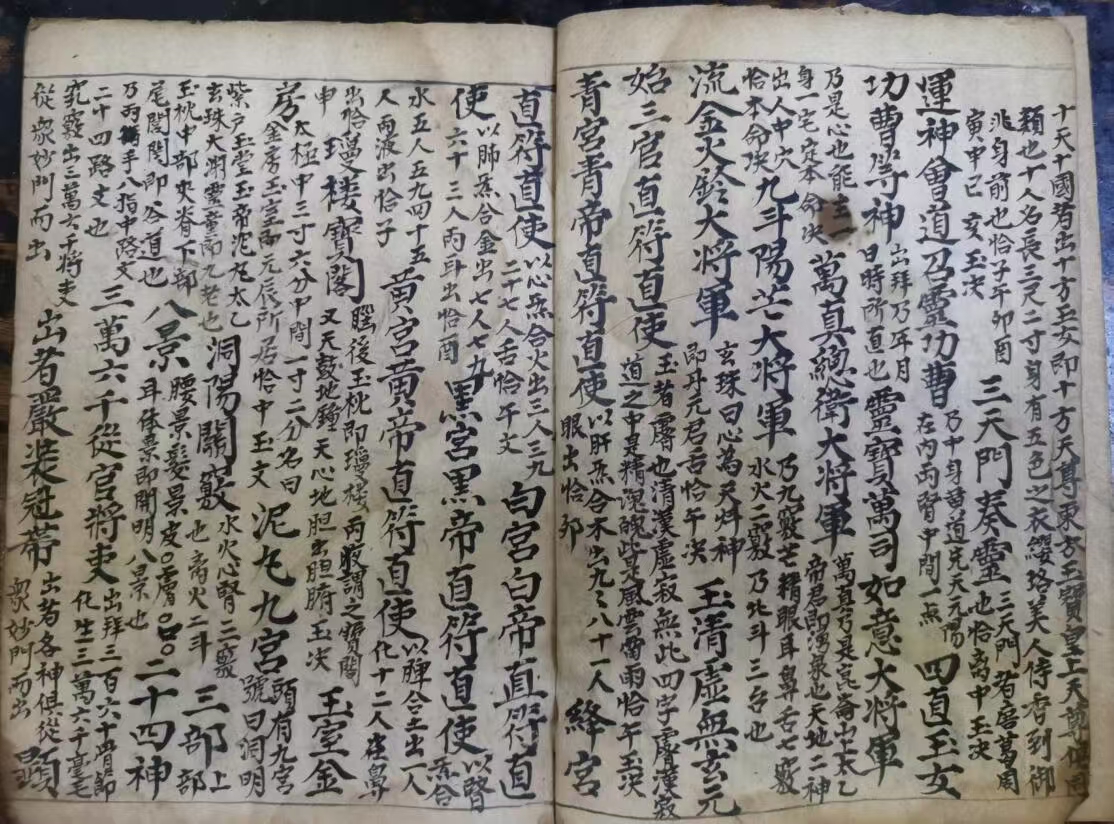 十天十國者出十方玉女即十方天尊東方玉寶皇上天尊
類也十人名長三尺二寸身有五色之衣纓珞美人侍香到御
兆身前也恰子午卯酉
寅申巳亥玉决
三天門奏靈
三天門者
也恰
中玉决
運神會道召靈功曹
乃中身萬道先天元陽
在內兩腎中間一点
四直玉女
功曹等神
出拜乃年月
日時所直也
靈寶萬司如意大將軍
乃是心也能主一
身一宅定本命决
萬真總衛大將軍
萬真弓是崑崙山上太乙
帝君即湧泉也天地二神
出人中穴
恰本命决
九斗陽芒大將軍
乃九竅芒精眼耳鼻舌七竅
水火二竅乃北斗三台也
流金火鈴大將軍
玄珠曰心為天
神
即丹元君舌恰午决
玉清虛無玄元
始三官直符直使
玉者膚也清漢虛寂無此四字膚漢寂
道之中是精魂魄此是風雲雷雨恰午玉决
青宮青帝直符直使
以肝炁合木出九九八十一人
眼出恰卯
絳宮
直符直使
以心炁合火出三人三九
二十七人舌恰午文
白宮白帝直符直
使
以肺炁合金出七人七九
六十三人兩耳出恰酉
黑宮黑帝直符直使
以腎
炁合
水五人五九四十五
人兩液出恰子
黃宮黃帝直符直使
以脾合土出一人
化十二人在鼻
出恰
申
瓊樓寶閣
腦後玉枕即瓊樓兩
謂之寶閣
又天鼓地鐘天心地胆出胆腑玉决
玉室金
房
太極中三寸六分中間一寸二分名曰
金房玉室即元辰所居恰中玉文
泥丸九宮
頭有九宮
號曰洞明
紫户玉堂玉帝泥丸太乙
玄珠太淵靈童南九老也
洞陽關竅
水火心腎二竅
也
火二斗
三部
上部
玉枕中部夾脊下部
尾閭閭即谷道也
八景
腰景髮景皮
膚
耳体景即開明八景也
二十四神
乃兩
手八指中路文
二十四路文也
三萬六千從官將吏
出拜三百六十骨節
化生三萬六千毫毛
究竅出三萬六千將吏
從眾妙門而出
出者嚴裝冠帶
出者各神俱從
眾妙門而出
顯